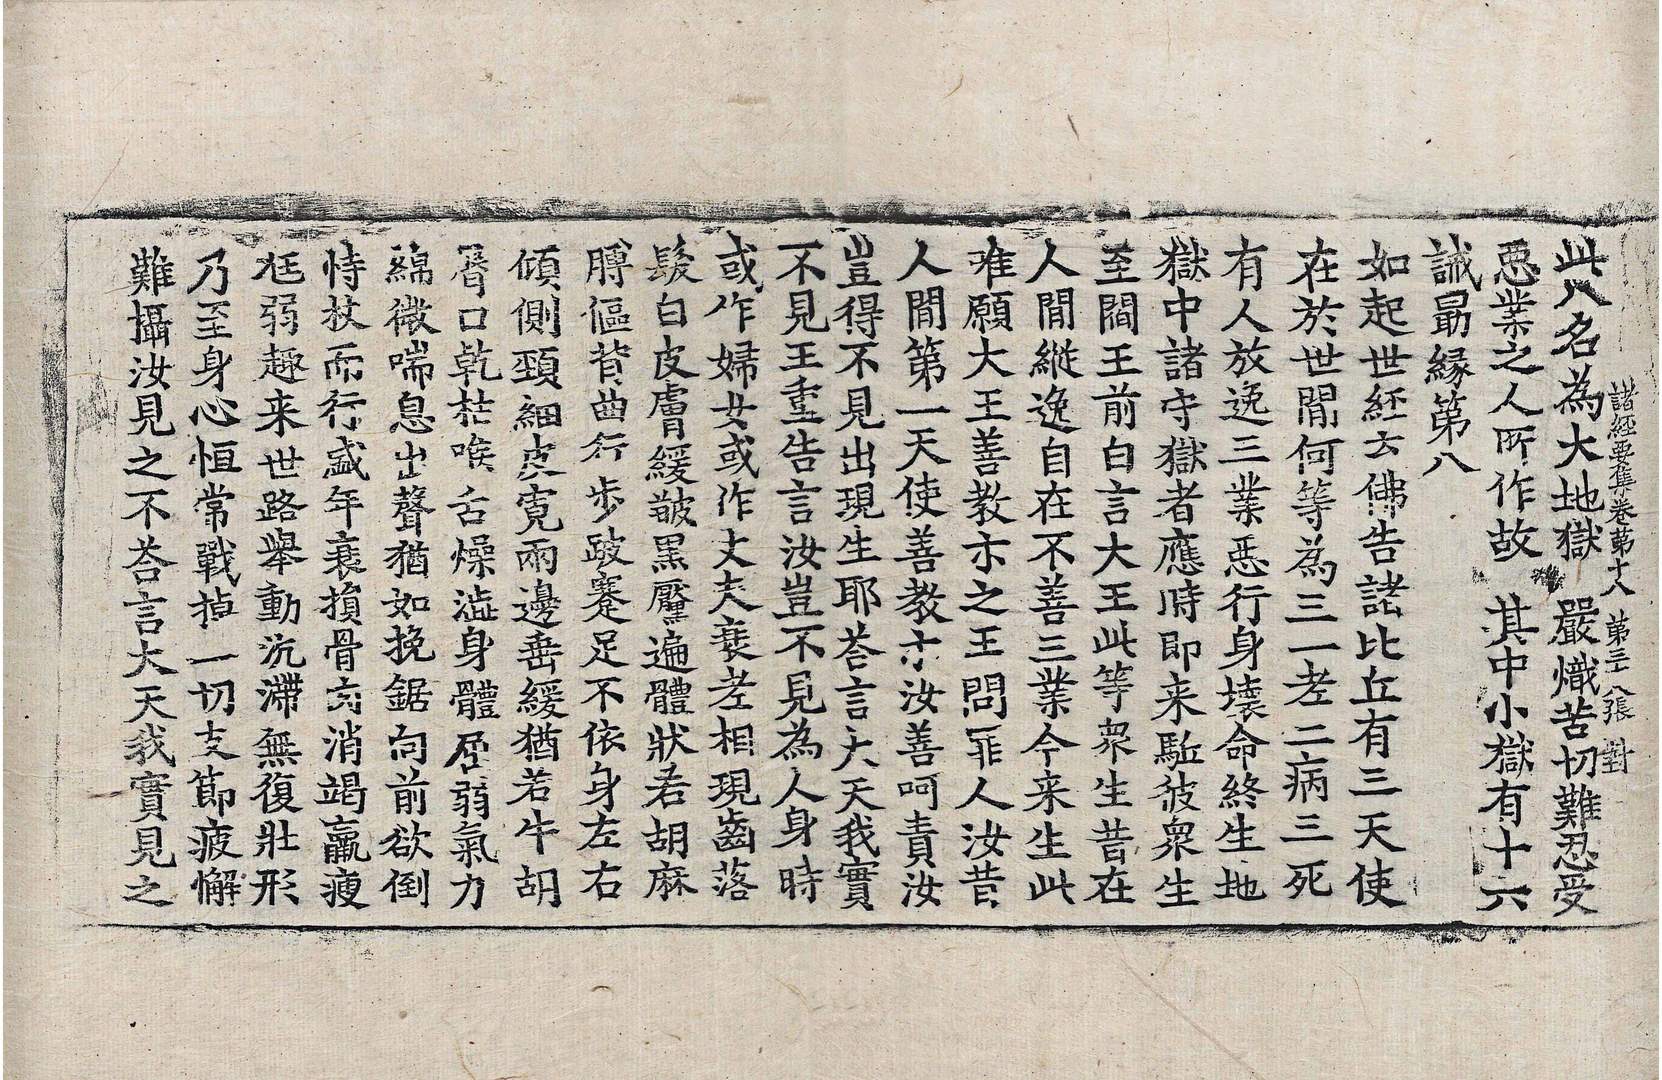 諸經要集卷第十八 第三八張 對
此八名為大地獄 嚴熾苦切難忍受
惡業之人所作故 其中小獄有十六
誡勗緣第八
如起世經云佛告諸比丘有三天使
在於世間何等為三一老二病三死
有人放逸三業惡行身壞命終生地
獄中諸守獄者應時即来駈彼衆生
至閻王前白言大王此等衆生昔在
人間縱逸自在不善三業今来生此
唯願大王善教示之王問罪人汝昔
人間第一天使善教示汝善呵責汝
豈得不見出現生耶荅言大天我實
不見王重告言汝豈不見為人身時
或作婦女或作丈夫衰老相現齒落
髮白皮膚緩皺黑黶遍體狀若胡麻
膊傴背曲行步跛蹇足不依身左右
傾側頸細皮寬兩邊垂緩猶若牛胡
脣口乾枯喉舌燥澁身體屈弱氣力
綿微喘息出聲猶如挽鋸向前欲倒
恃杖而行盛年衰損骨肉消竭羸瘦
尩弱趣来世路舉動沉滯無復壯形
乃至身心恒常戰掉一切支節疲懈
難攝汝見之不荅言大天我實見之